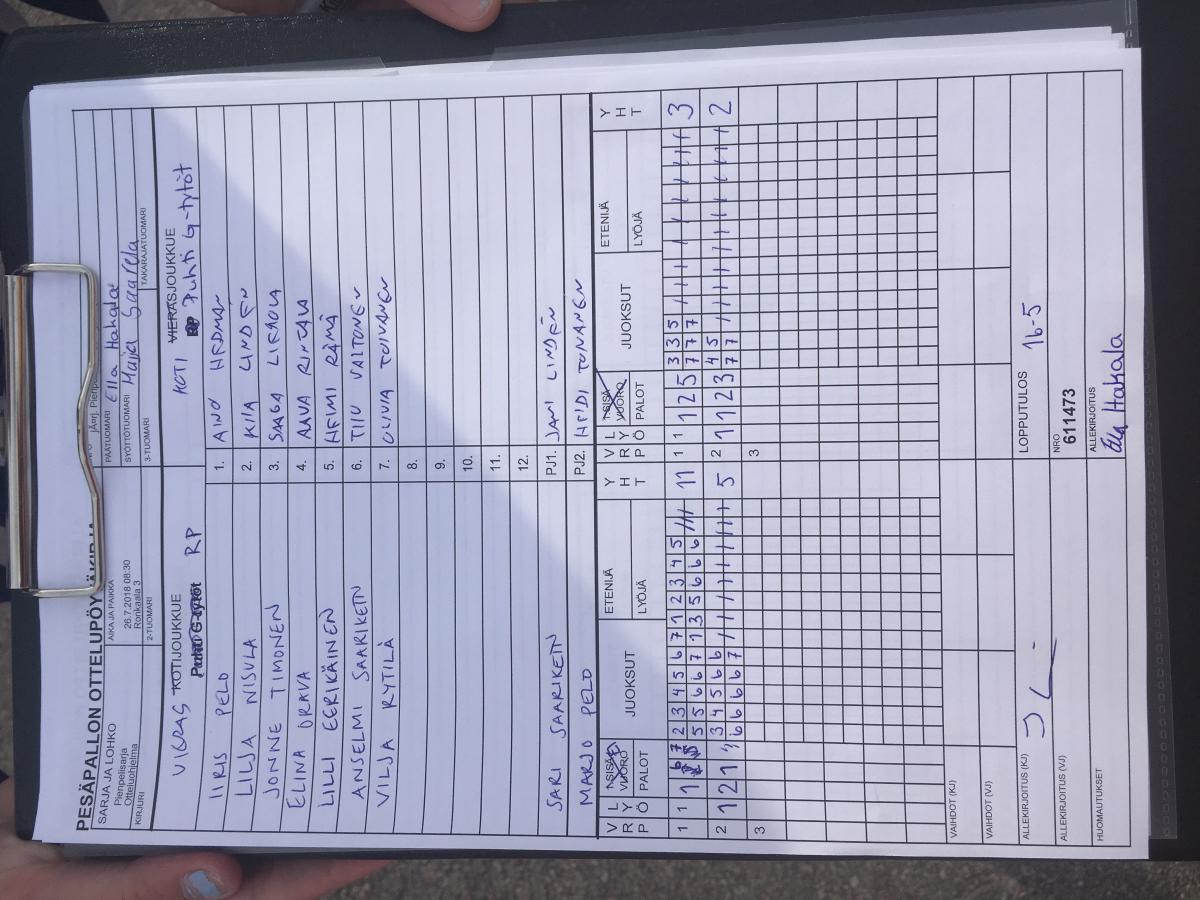 PESÄPALLON OTTELUPÖYTÄKIRJA
SARJA JA LOHKO
Pienpelisarja
Otteluohjelma
KIRJURI
AIKA JA PAIKKA
26.7.2018 08:30
Ronkaala 3
2-TUOMARI
PÄÄTUOMARI Ella Hakala
SYÖTTÖTUOMARI Maija Saarela
3-TUOMARI
TAKARAJATUOMARI
VIERAS KOTIJOUKKUE
Puhti G-tytöt RP
KOTI VIERASJOUKKUE
RP Puhti G-tytöt
IIRIS PELO 1. AINO HEDMAN
LILJA NISULA 2. KIIA LINDÉN
JONNE TIMONEN 3. SAAGA LIRAOLA
ELINA ORAVA 4. AAVA RINTALA
LILLI EERIKÄINEN 5. HEIMI RÄMÄ
ANSELMI SAARIKETN 6. TIIU VALTONEN
VILJA RYTILÄ 7. OLIVIA TOIVANEN
8.
9.
10.
11.
12.
SARI SAARIKETN PJ1. JANI LINDÉN
MARJO PELO PJ2. HEIDI TOIVANEN
V R P L Y Ö 1.SISÄ VUORO PALOT JUOKSUT ETENIJÄ LYÖJÄ Y H T V R P L Y Ö 1.SISÄ VUORO PALOT JUOKSUT ETENIJÄ LYÖJÄ Y H T
1 1 1 2 3 4 5 6 7 1 2 3 4 5 11 1 1 1 2 5 3 3 5 3
5 5 6 6 7 1 3 5 6 6 6 7 7 7
2 1 2 1 3 4 5 6 6 5 2 1 1 2 3 4 5 2
6 6 6 6 7 7 7
3 3
VAIHDOT (KJ)
VAIHDOT (VJ)
ALLEKIRJOITUS (KJ)
LOPPUTULOS 16-5
ALLEKIRJOITUS (VJ)
NRO
611473
HUOMAUTUKSET
ALLEKIRJOITUS
Ella Hakala